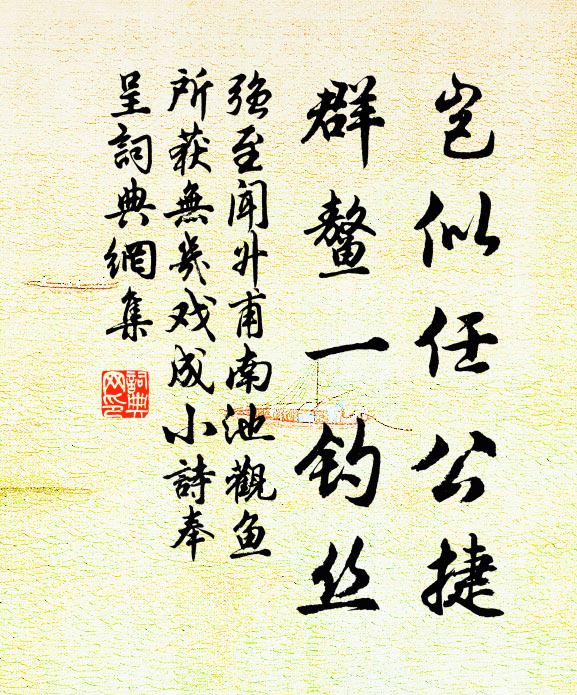 岂似任公捷
群鳌一钓丝
强至闻外甫南池觀鱼
所获無幾戏成小詩奉
呈詞典網集
詞典
网印